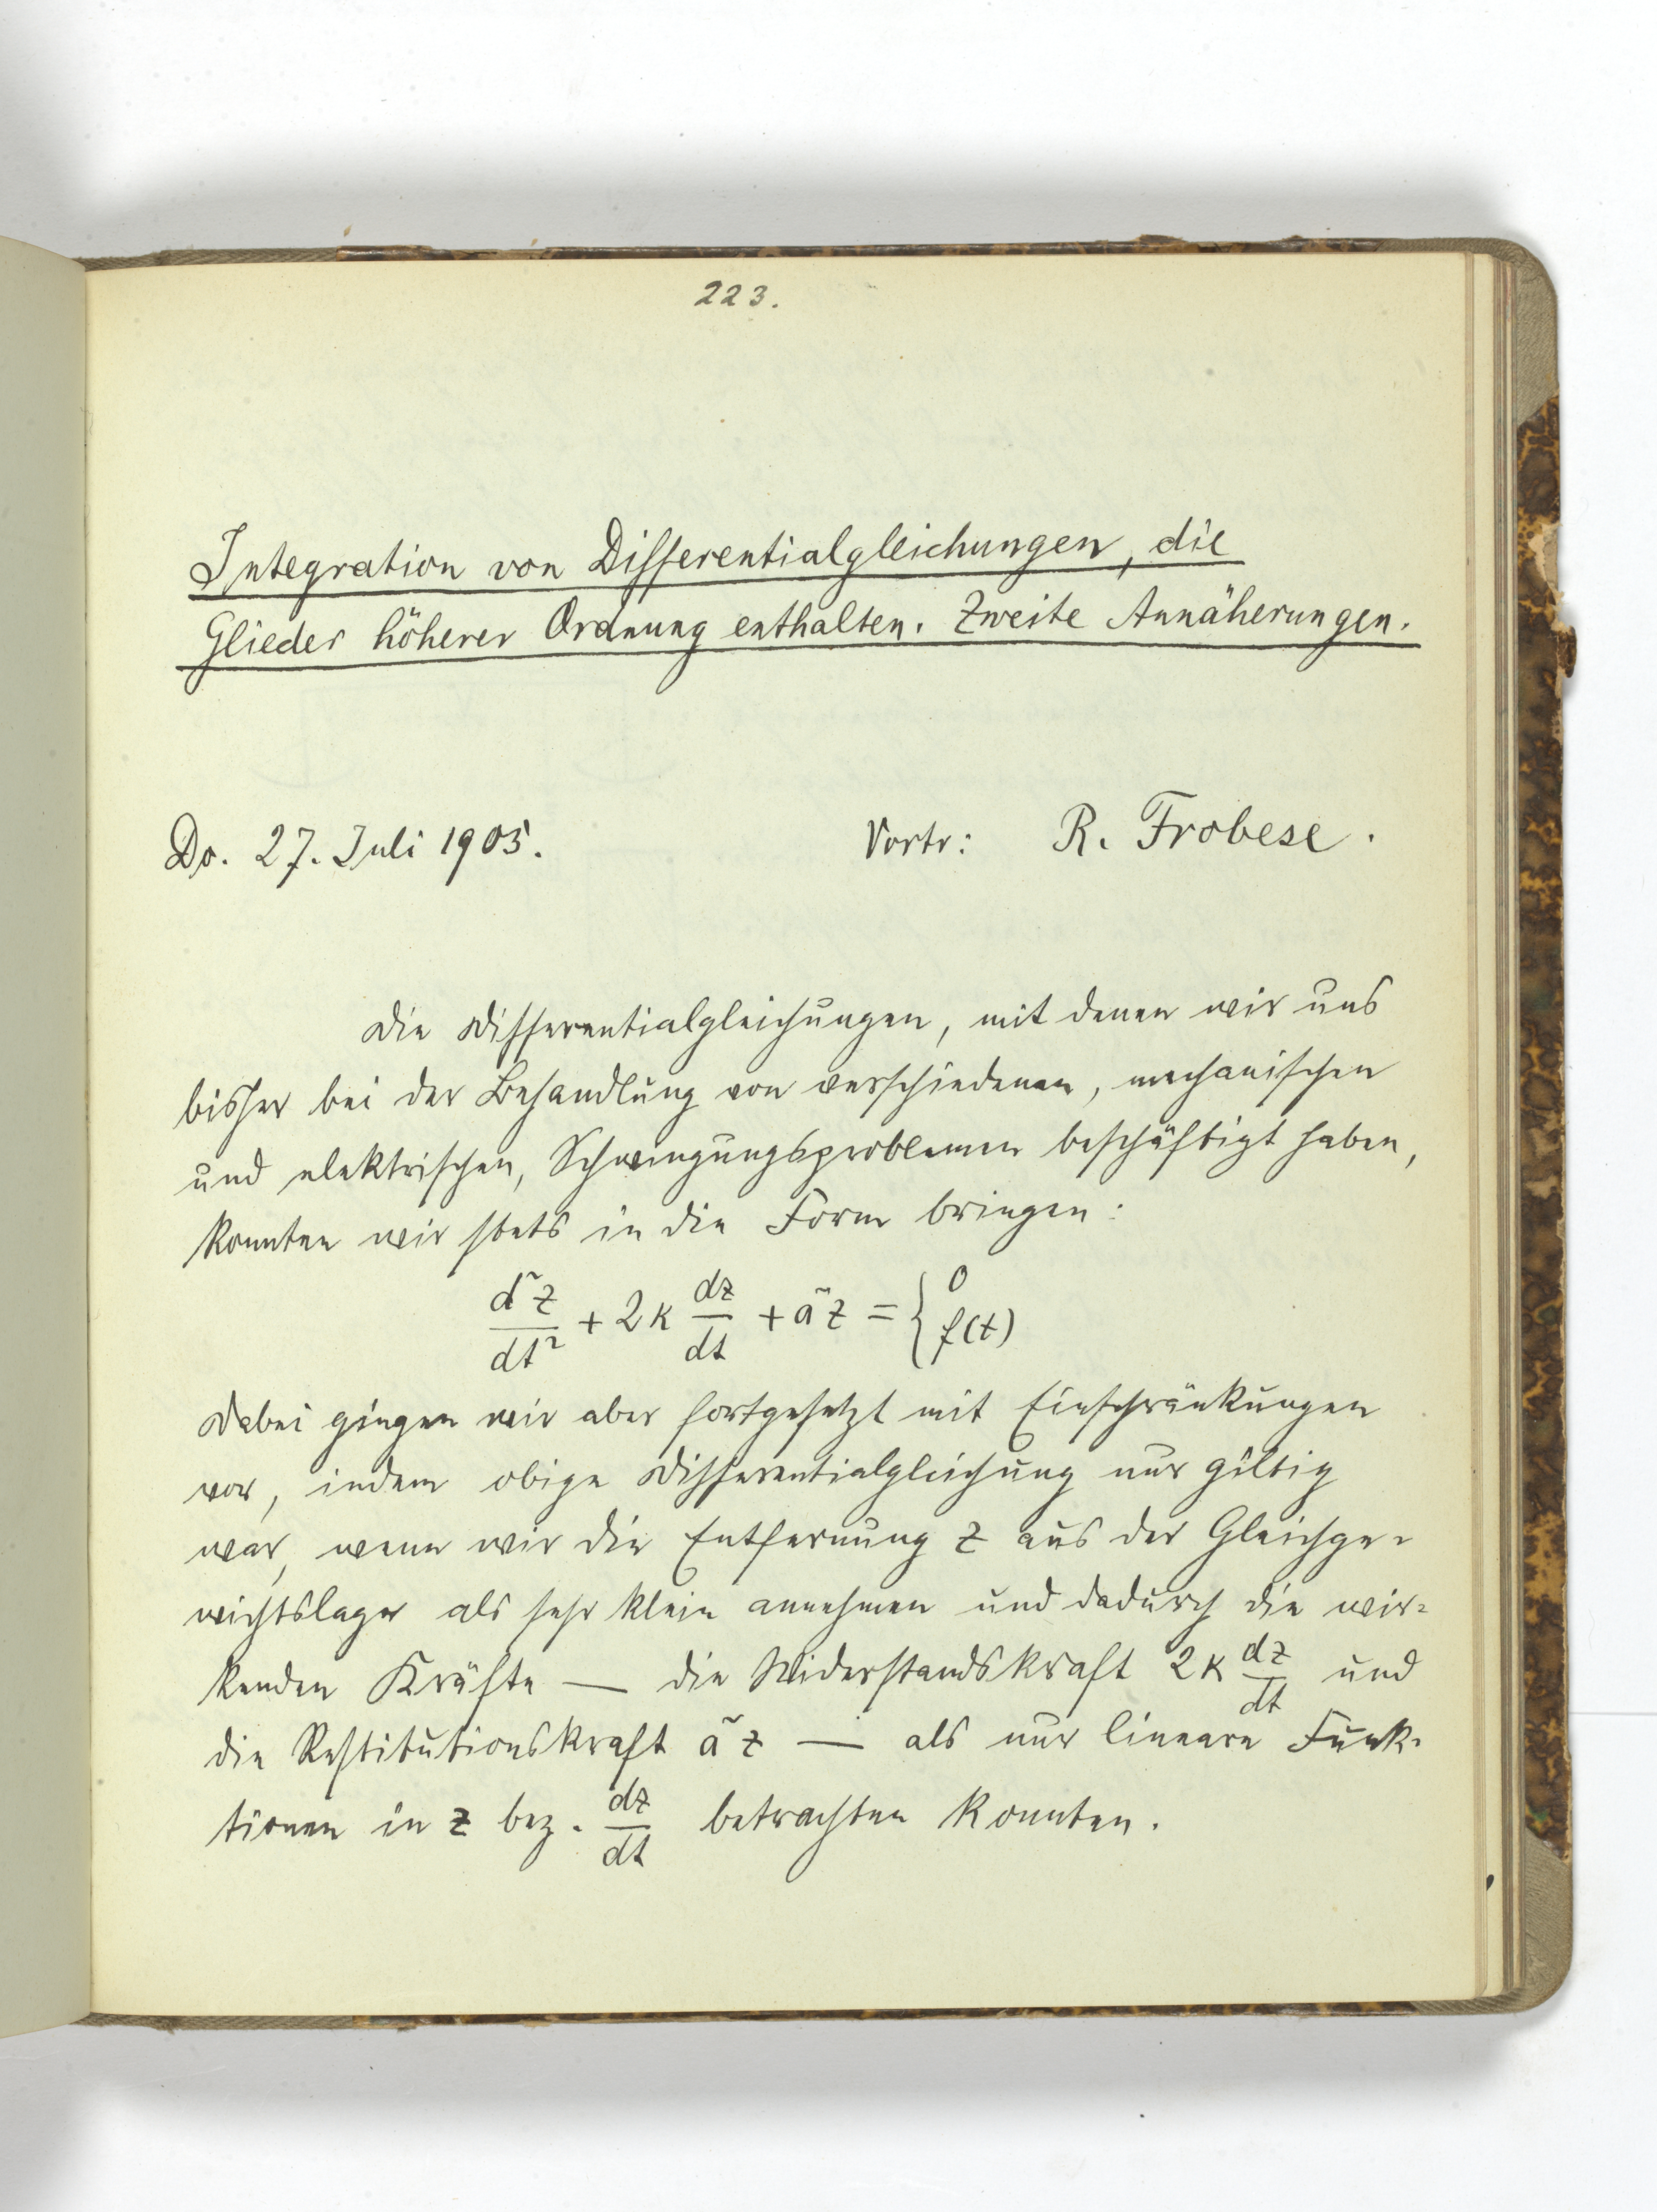 223.
Integration von Differentialgleichungen, die
Glieder höherer Ordnung enthalten. Zweite Annäherungen.
Do. 27. Juli 1905. Vortr: R. Frobese.
Die Differentialgleichungen, mit denen wir uns
bisher bei der Behandlung von verschiedenen, mechanischen
und elektrischen, Schwingungsproblemen beschäftigt haben,
konnten wir stets in die Form bringen:
d²z/dt² + 2κ dz/dt + a²z = { 0 f(t)
Dabei gingen wir aber fortgesetzt mit Einschränkungen
vor, indem obige Differentialgleichung nur gültig
war, wenn wir die Entfernung z aus der Gleichge-
wichtslage als sehr klein annehmen und dadurch die wir-
kenden Kräfte — die Widerstandskraft 2κ dz/dt und
die Restitutionskraft a²z — als nur lineare Funk-
tionen in z bez. dz/dt betrachten konnten.